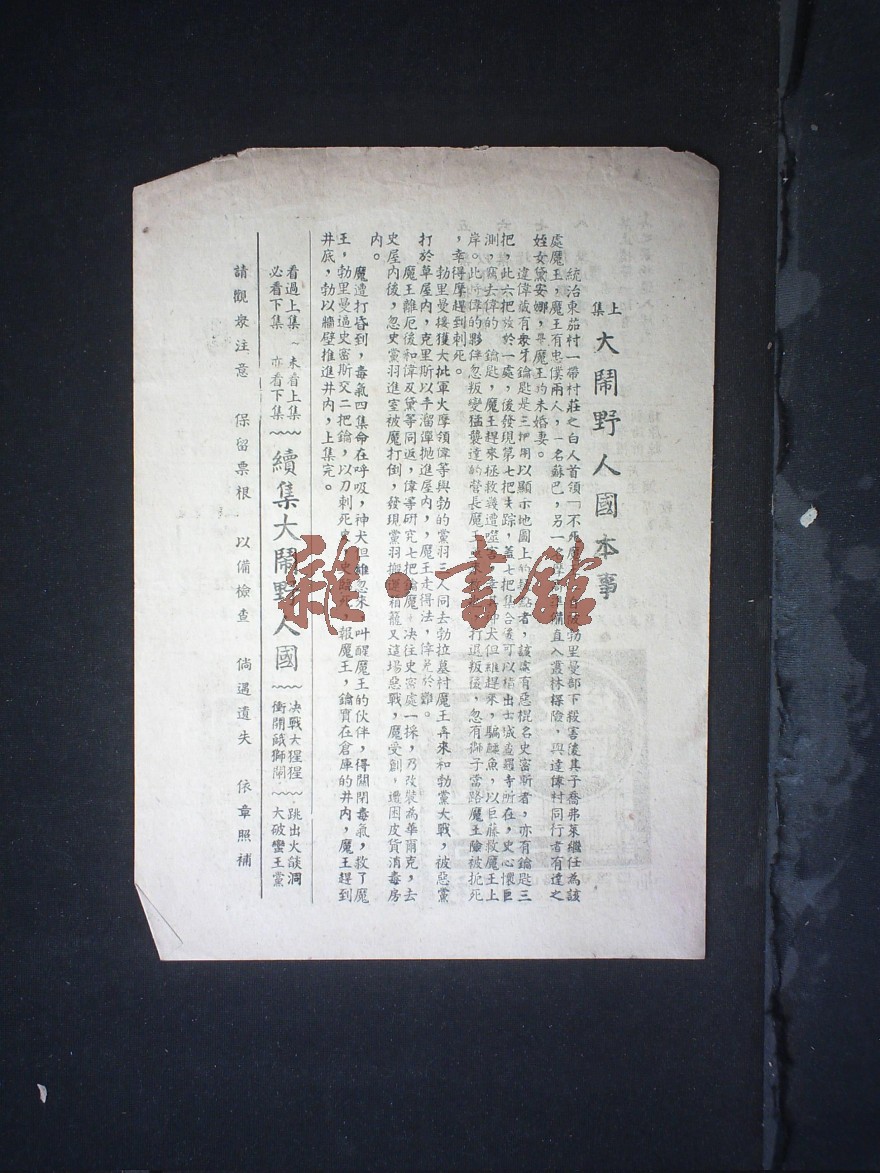 上集
大鬧野人國本事
統治東茄村一帶村莊之白人首領「不死魔 勃里曼部下殺害後其子喬弗萊繼任為該
處魔王,魔王有忠僕兩人,一名蘇巴,另一名 備直入叢林探險,與達偉村同行者有達之
姪女黛安娜,畢魔王的未婚妻。
達偉藏有象牙鑰匙是三把用以顯示地圖上的 點者,該處有惡棍名史密斯者,亦有鑰匙三
把,此六把放於一處,後發現第七把失踪,蓋七把集合後可以 出古城盈羅寺所在,史心懷叵
測,竊去偉的鑰匙,魔王趕來拯救幾遭噬 神犬但雖趕來,騙鱷魚,以巨藤救魔王上
岸。此時偉的夥伴忽叛變猛襲達的營長魔王 打退叛後,忽有獅子當路魔王險被扼死
,幸得摩趕到刺死。
勃里曼接獲大批軍火摩領偉等與勃的黨羽三人同去勃拉墓村魔王再來和勃黨大戰,被惡黨
打於草屋內,克里斯以手溜彈抛進屋內,魔王走得法,倖免於難。
魔王離厄後和偉及黛等同返,偉等研究七把鑰魔王决往史密處一探,乃改裝為華爾克,去
史屋內後,忽史黨羽進室被魔打倒,發現黨羽搬運箱籠又這場惡戰,魔受創,遭困皮貨消毒房
內。
魔遭打昏到,毒氣四集命在呼吸,神犬但雖忽來,叫醒魔王的伙伴,得關閉毒氣,救了魔
王,勃里曼逼史密斯交二把鑰,以刀刺死史,史臨死,報魔王,鑰實在倉庫的井內,魔王趕到
井底,勃以牆壁推進井內,上集完。
看過上集 未看上集
必看下集 亦看下集
續集大鬧野人國
决戰大猩猩 跳出火燄洞
衝開餓獅闌 大破蠻王黨
請觀衆注意 保留票根 以備檢查 倘遇遺失 依章照補
雜·書館